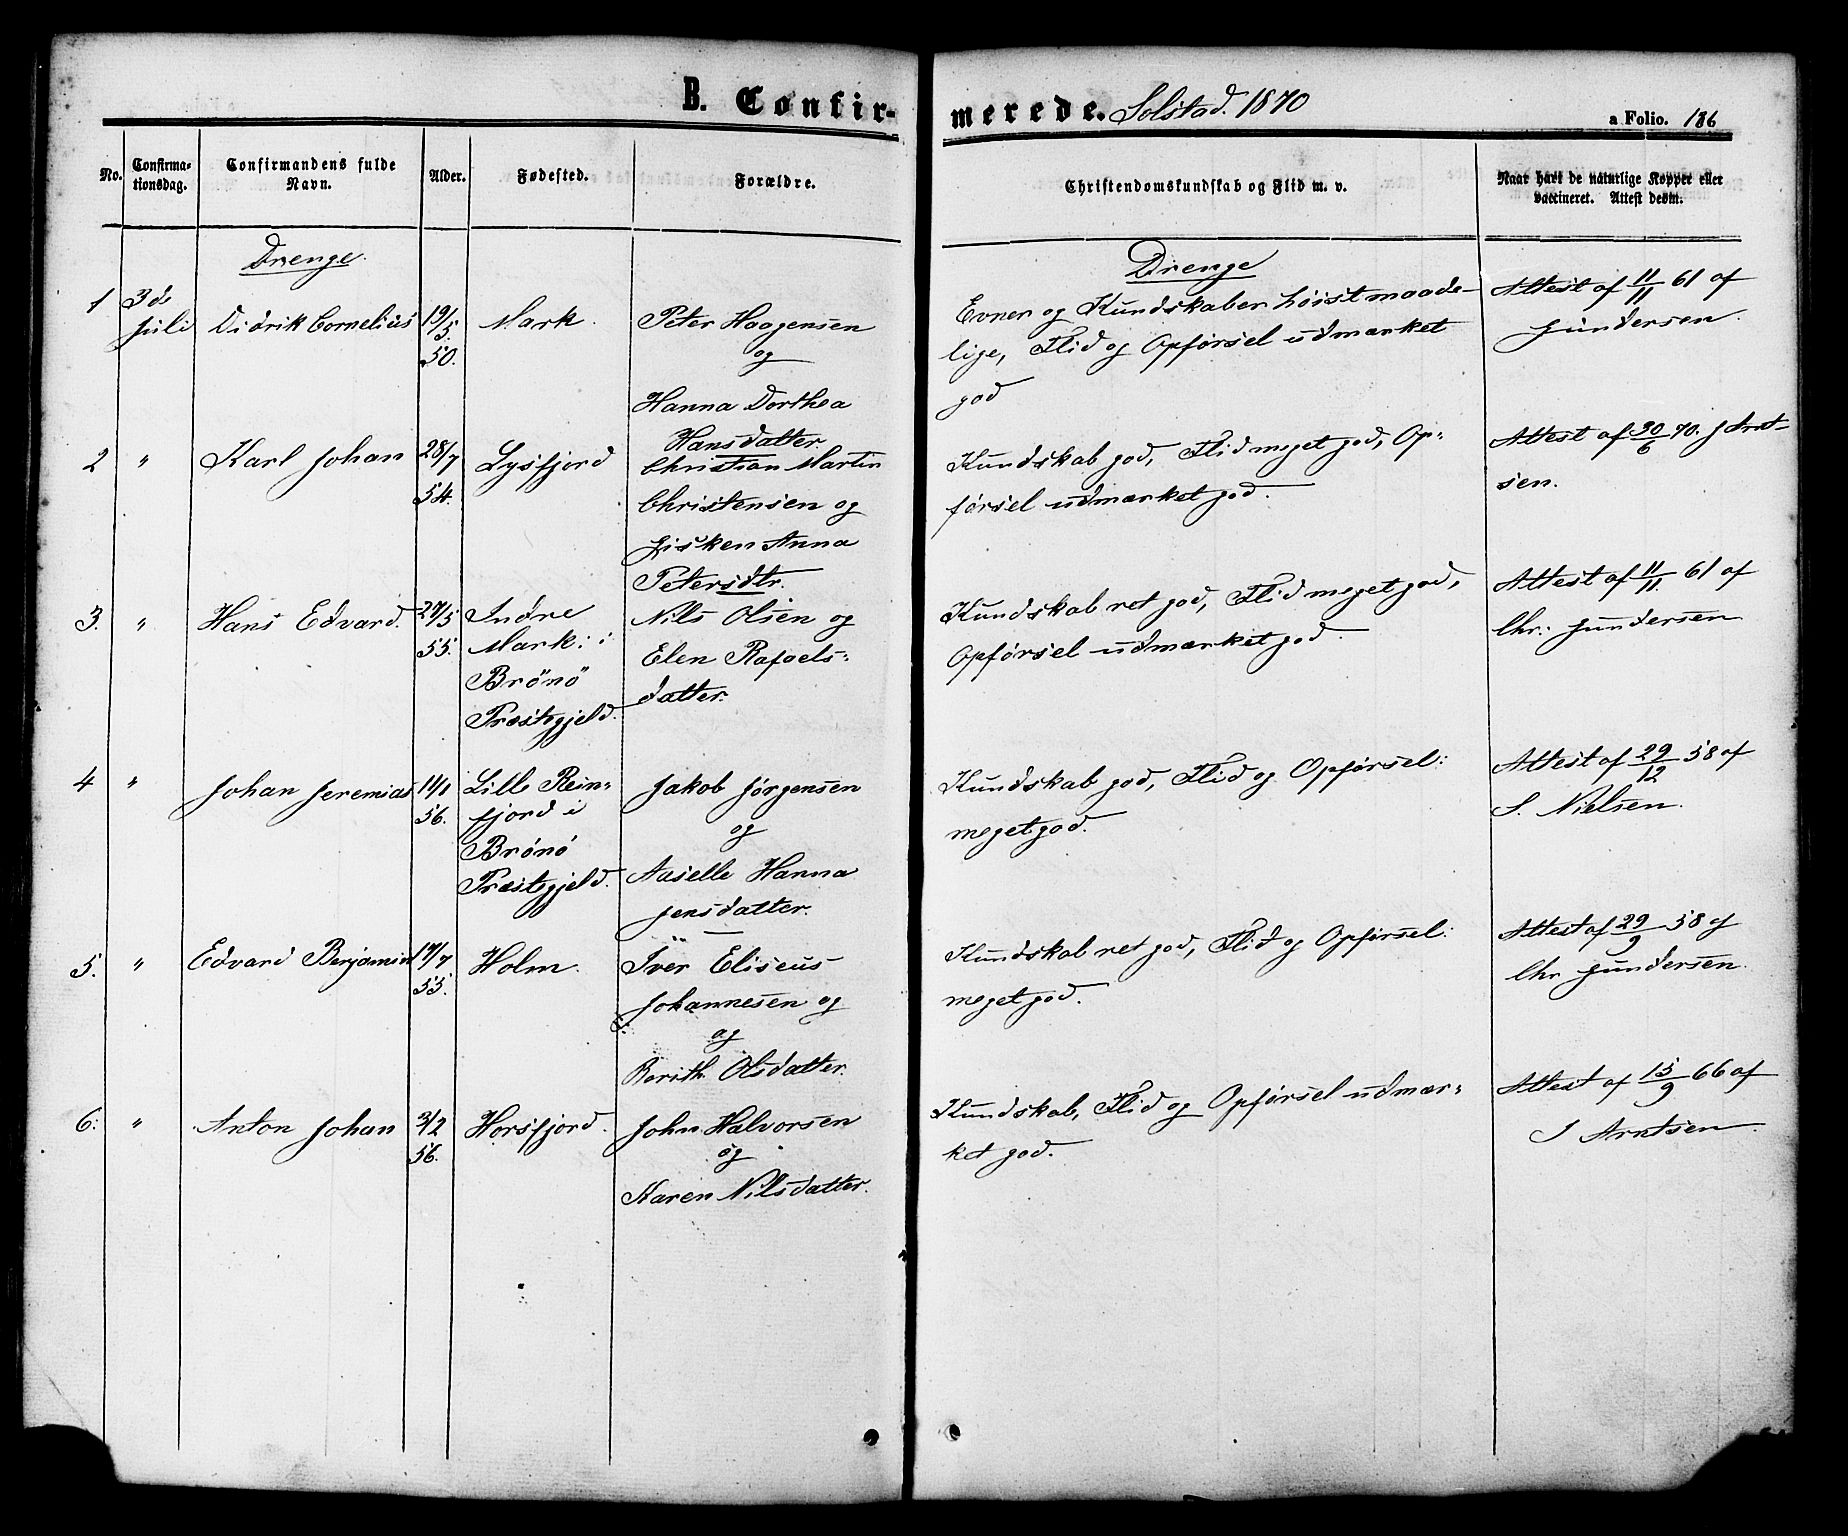 B. Confir-
merede. Solstad. 1870
a Folio. 186
No.
Confirma-
tionsdag.
Confirmandens fulde
Navn.
Alder.
Fødested.
Forældre.
Christendomskundskab og Flid m. v.
Naar havt de naturlige Kopper eller
vaccineret. Attest derom.
Drenge.
Drenge
1
3de
Juli
Didrik Cornelius
19/5
50.
Mark.
Peter Haagensen
og
Hanna Dorthea
Hansdatter
Evner og Kundskaber høist maade-
lige, Flid og Opførsel udmærket
god
Attest af 11/11 61 af
Gundersen.
2
"
Karl Johan
28/7
54.
Lysfjord
Christian Martin
Christensen og
Anna
Petersdtr.
Kundskab god, Flid meget god, Op-
førsel udmærket god.
Attest af 30/6 70. J Arnt-
sen.
3.
"
Hans Edvard.
27/5
55.
Indre
Mark: i
Brönö
Præstegjeld.
Nils Olsen og
Elen Rafaels-
datter.
Kundskab ret god, Flid meget god,
Opførsel udmærket god.
Attest af 11/11. 61 af
Chr: Gundersen
4
"
Johan Jeremias
14/1
56.
Lille Rein-
fjord i
Brönö
Præstegjeld.
Jakob Jørgensen
og
Aaselle Hanna
Jensdatter.
Kundskab god, Flid og Opførsel:
meget god.
Attest af 29/12 58 af
S. Nielsen.
5.
"
Edvard Benjamin
17/7
55.
Holm.
Iver Eliseus
Johannesen og
og
Berith Olsdatter.
Kundskab ret god, Flid og Opførsel:
meget god.
Attest af 29/9 58 af
Chr Gundersen.
6:
"
Anton Johan
2/2
56.
Horsfjord.
John Halvorsen
og
Karen Nilsdatter.
Kundskab, Flid og Opførsel udmær-
ket god.
Attest af 15/9 66 af
J Arntsen